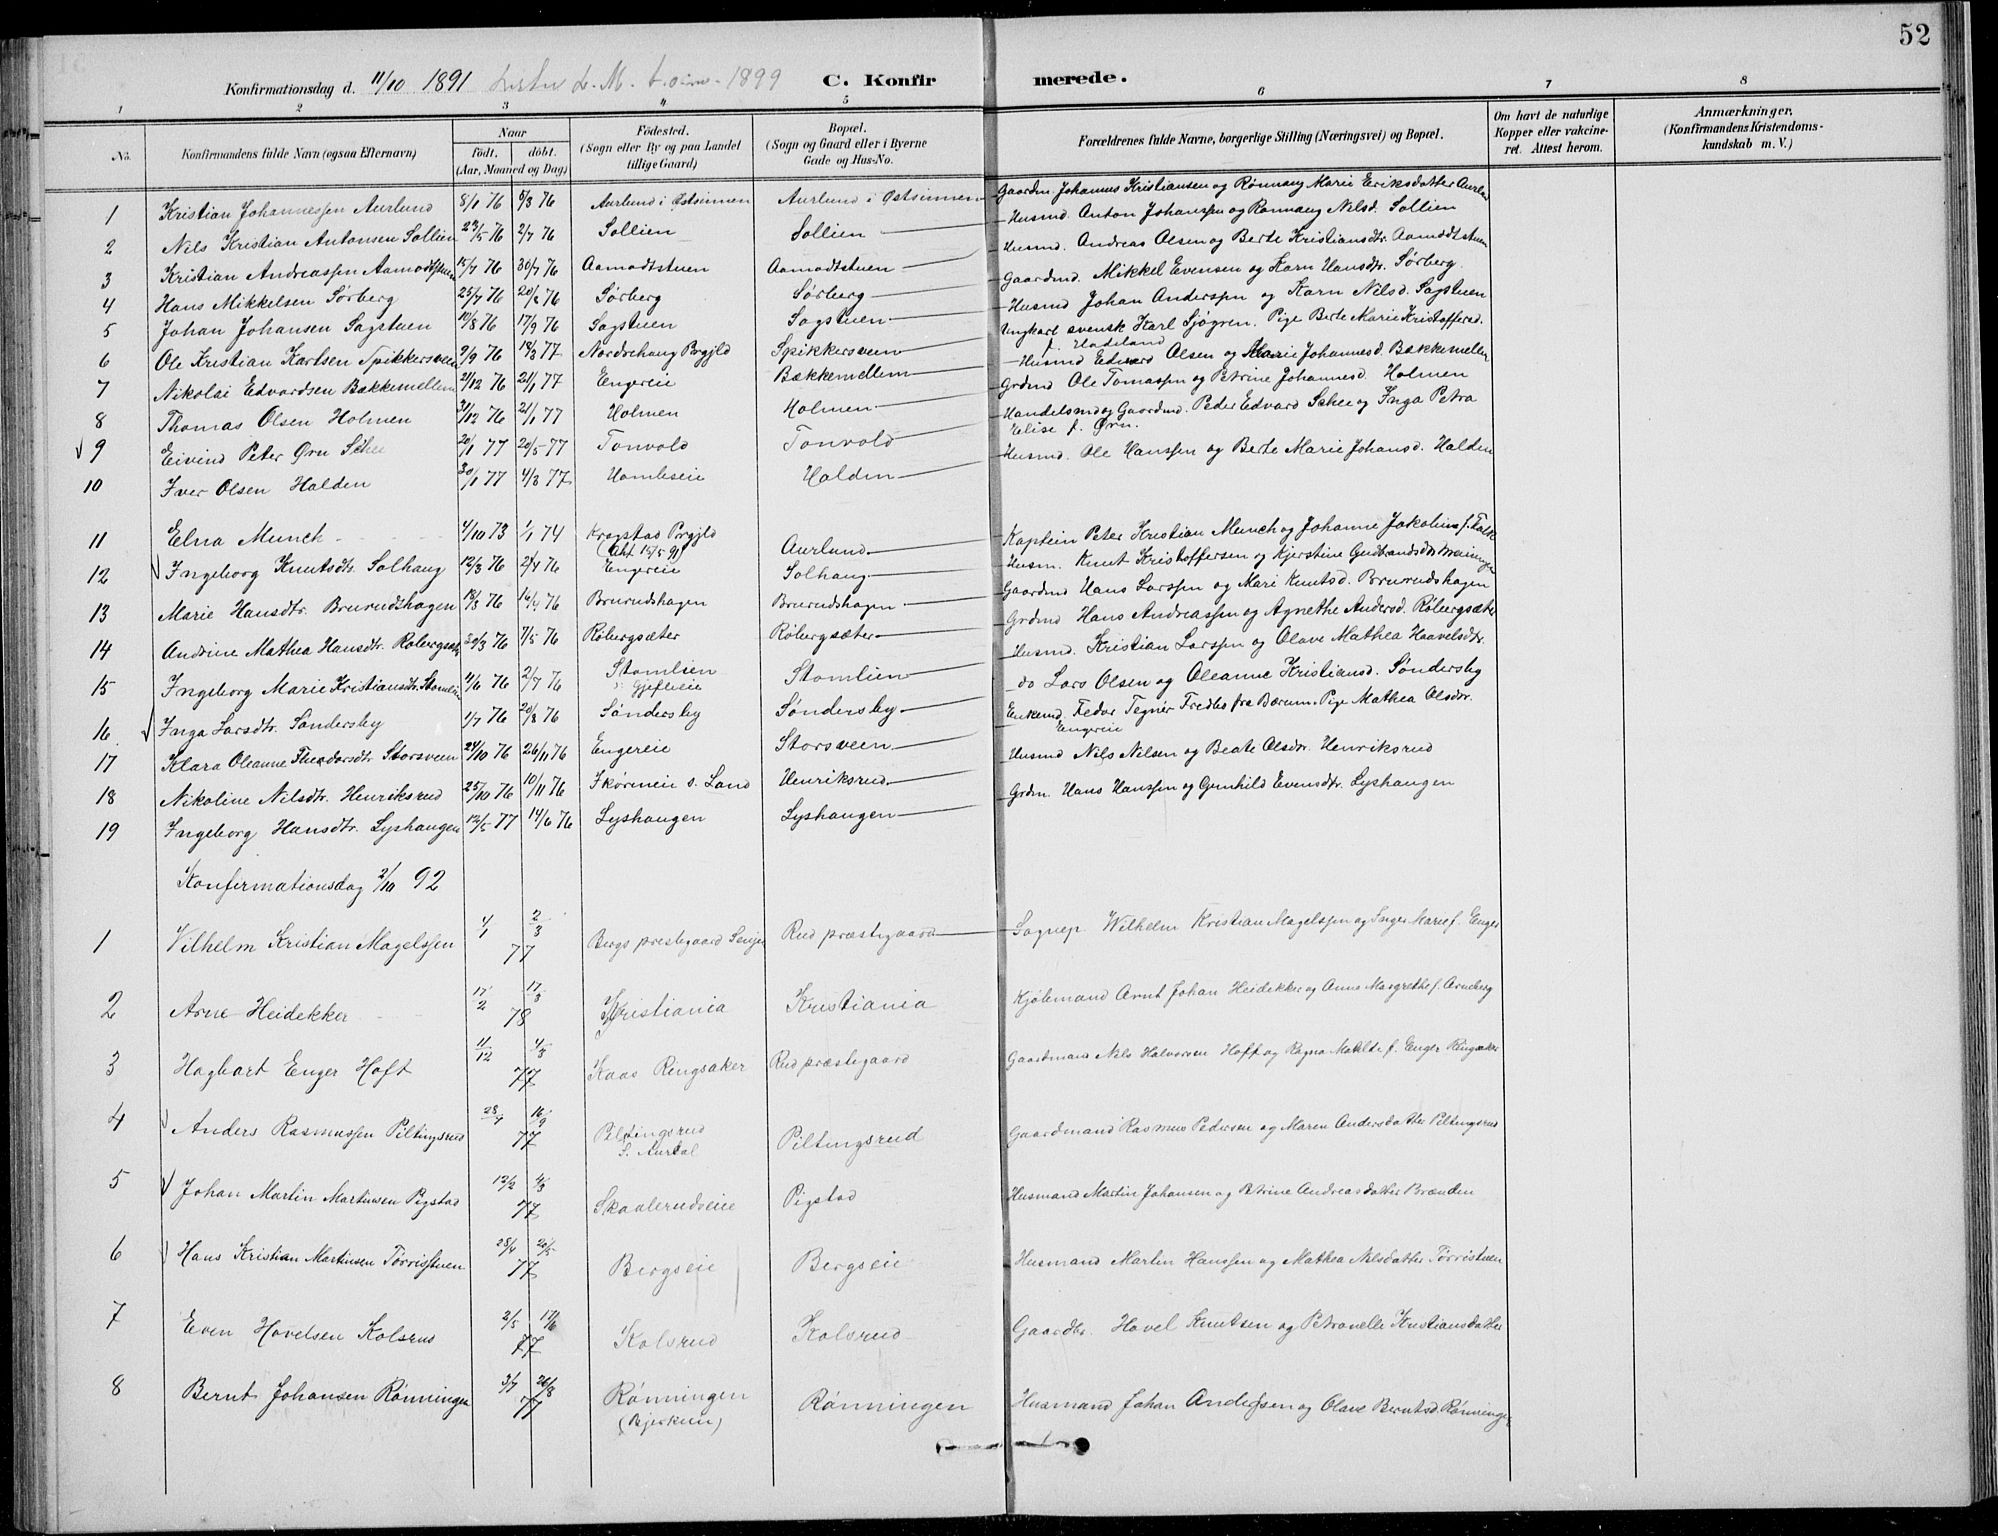 52
Konfirmationsdag d. 11/10 1891 1899 C. Konfirmerede.
1 2 3 4 5 6 7 8
No. Konfirmandens fulde Navn (ogsaa Efternavn) Naar födt. döbt. (Aar, Maaned og Dag) Födested. (Sogn eller By og paa Landet tillige Gaard) Bopæl. (Sogn og Gaard eller i Byerne Gade og Hus-No. Forældrenes fulde Navne, borgerlige Stilling (Næringsvei) og Bopæl. Om havt de naturlige Kopper eller vakcineret. Attest herom. Anmærkninger, (Konfirmandens Kristendomskundskab m. V.)
1 Kristian Johannessen Aurlund 8/1 76 5/3 76 Aurlund i Østsinnen Aurlund i Østsinnen Gaardm. Johannes Kristiansen og Rønnaug Marie Eriksdatter Aurlund
2 Nils Kristian Antonsen Sollien 29/5 76 2/7 76 Sollien Sollien Husmd. Anton Johanssen og Rønnaug Nilsd. Sollien
3 Kristian Andreassen Aamodtstuen 15/7 76 30/7 76 Aamodtstuen Aamodtstuen Husmd. Andreas Olsen og Berte Kristiansdtr. Aamodtstuen
4 Hans Mikkelsen Sørberg 25/7 76 20/8 76 Sørberg Sørberg Gaardmd. Mikkel Evensen og Karn Hansdtr. Sørberg
5 Johan Johansen Sagstuen 10/8 76 17/9 76 Sagstuen Sagstuen Husmd Johan Anderssen og Karn Nilsd. Sagstuen
6 Ole Kristian Karlsen Spikkersveen 9/9 76 18/3 77 Nordrehaug Prgjld Spikkersveen Ungkarl svensk Karl Sjøgren. Pige Berte Marie Kristoffersd. f. Hadeland
7 Nikolai Edvardsen Bækkemellem 21/12 76 21/1 77 Engereie Bækkemellem Husmd Edvard Olsen og Marie Johannesd. Bækkemellem
8 Thomas Olsen Holmen 31/12 76 21/1 77 Holmen Holmen Grdmd Ole Tomassen og Petrine Johannesd. Holmen
9 Eivind Peter Ørn Schee 20/1 77 20/5 77 Tonvold Tonvold Handelsmd og Gaardmd. Peder Edvard Schee og Inga Petra Elise f. Ørn.
10 Iver Olsen Halden 30/1 77 4/3 77 Homleeie Halden Husmd. Ole Hanssen og Berte Marie Johansd. Halden
11 Elna Munch 4/10 73 1/1 74 Kragstad Prgjld (Att. 15/5 91) Aurlund Kaptein Peter Kristian Munch og Johanne Jakobine f. Falk
12 Ingeborg Knutsdtr. Solhaug 12/3 76 2/4 76 Engereie Solhaug Husm. Knut Kristoffersen og Kjerstine Gudbrandsdtr.
13 Marie Hansdtr. Brurudshagen 18/3 76 16/4 76 Brurudshagen Brurudshagen Gaardmd Hans Larssen og Mari Knutsd. Brurudshagen
14 Andrine Mathea Hansdtr. Røbergsæter 30/3 76 7/5 76 Røbergsæter Røbergsæter Grdmd Hans Andreassen og Agnethe Andersd. Røbergsæter
15 Ingeborg Marie Kristiansdtr. Stomlien 11/6 76 2/7 76 Stomlien Gjefleeie Stomlien Husmd. Kristian Larssen og Olave Mathea Haavelsdtr.
16 Inga Larsdtr. Søndersby 1/7 76 20/8 76 Søndersby Søndersby do Lars Olsen og Oleanne Kristiansd. Søndersby
17 Klara Oleanne Theodorsdtr. Storsveen 24/10 76 26/11 76 Engereie Storsveen Enkemd. Fedor Tegnér Fredbo fra Bærum. Pige Mathea Olsdtr. Engereie
18 Nikoline Nilsdtr. Henriksrud 25/10 76 10/11 76 s. Land Henriksrud Husmd Nils Nilsen og Beate Olsdtr. Henriksrud
19 Ingeborg Hansdtr. Lyshaugen 12/5 77 14/6 76 Lyshaugen Lyshaugen Grdm. Hans Hanssen og Gunhild Evensdtr. Lyshaugen
Konfirmationsdag 2/10 92
1 Vilhelm Kristian Magelssen 4/1 2/3 77 Bergs prestegaard Senjen Rud præstegaard Sognep. Wilhelm Kristian Magelssen og Inger Marie f. Enger
2 Arne Heidekker 17/2 17/3 78 Kristiania Kristiania Kjøbmand Arnt Johan Heidekker og Anne Margrethe f. Arneberg
3 Hagbart Enger Hoft 11/12 4/3 77 Kaas Ringsaker Rud præstegaard Gaardmand Nils Halvorsen Hoff og Ragna Matilde f. Enger Ringsaker
4 Anders Rasmussen Piltingsrud 28/4 16/9 77 Piltingsrud S. Aurdal Piltingsrud Gaardmand Rasmus Pedersen og Maren Andersdatter Piltingsrud
5 Johan Martin Martinsen Pigstad 12/2 4/3 77 Skaalerudseie Pigstad Husmand Martin Johansen og Petrine Andreasdatter Brænden
6 Hans Kristian Martinsen Tørristuen 28/4 20/5 77 Bergseie Bergseie Husmand Martin Hanssen og Mathea Nilsdatter Tørristuen
7 Even Hovelsen Kolsrud 2/5 17/6 77 Kolsrud Kolsrud Gaardbr. Hovel Knutsen og Petronelle Kristiansdatter
8 Bernt Johansen Rønningen 3/7 26/8 77 Rønningen (Bjerkeeie) Rønningen Husmand Johan Andersen og Olave Berntsd. Rønningen